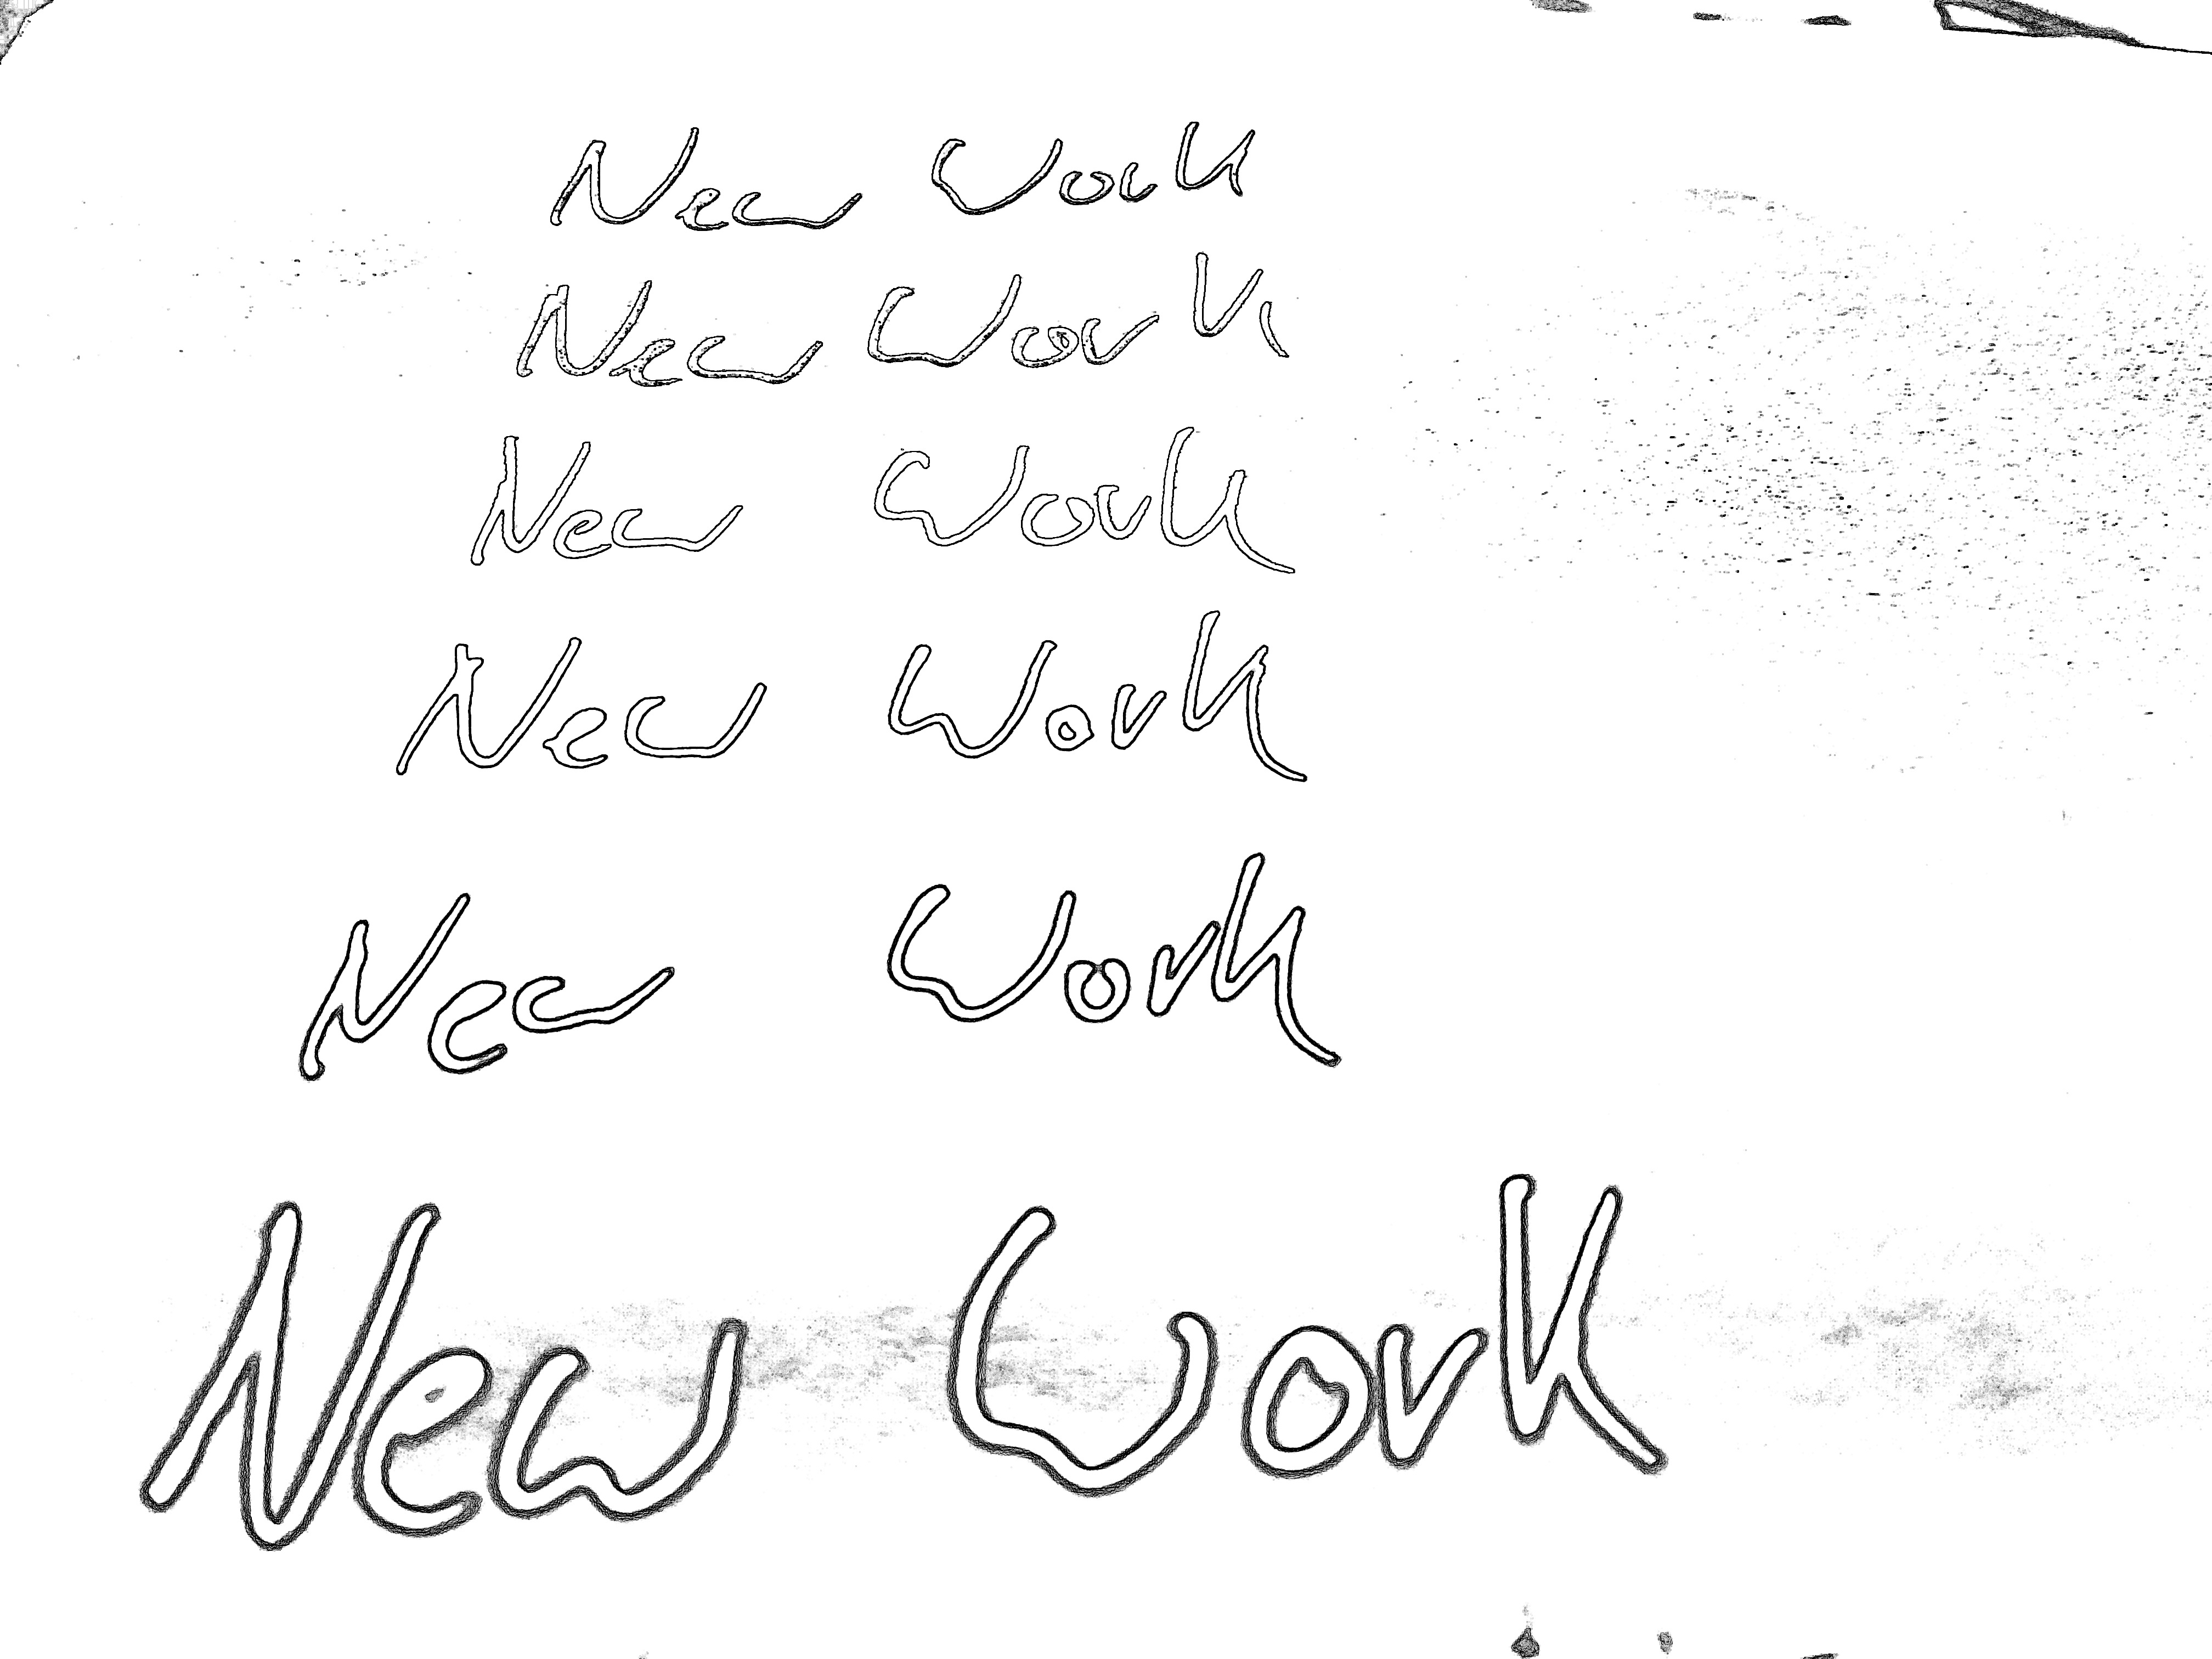 New Work
New Work
New Work
New Work
New Work
New Work